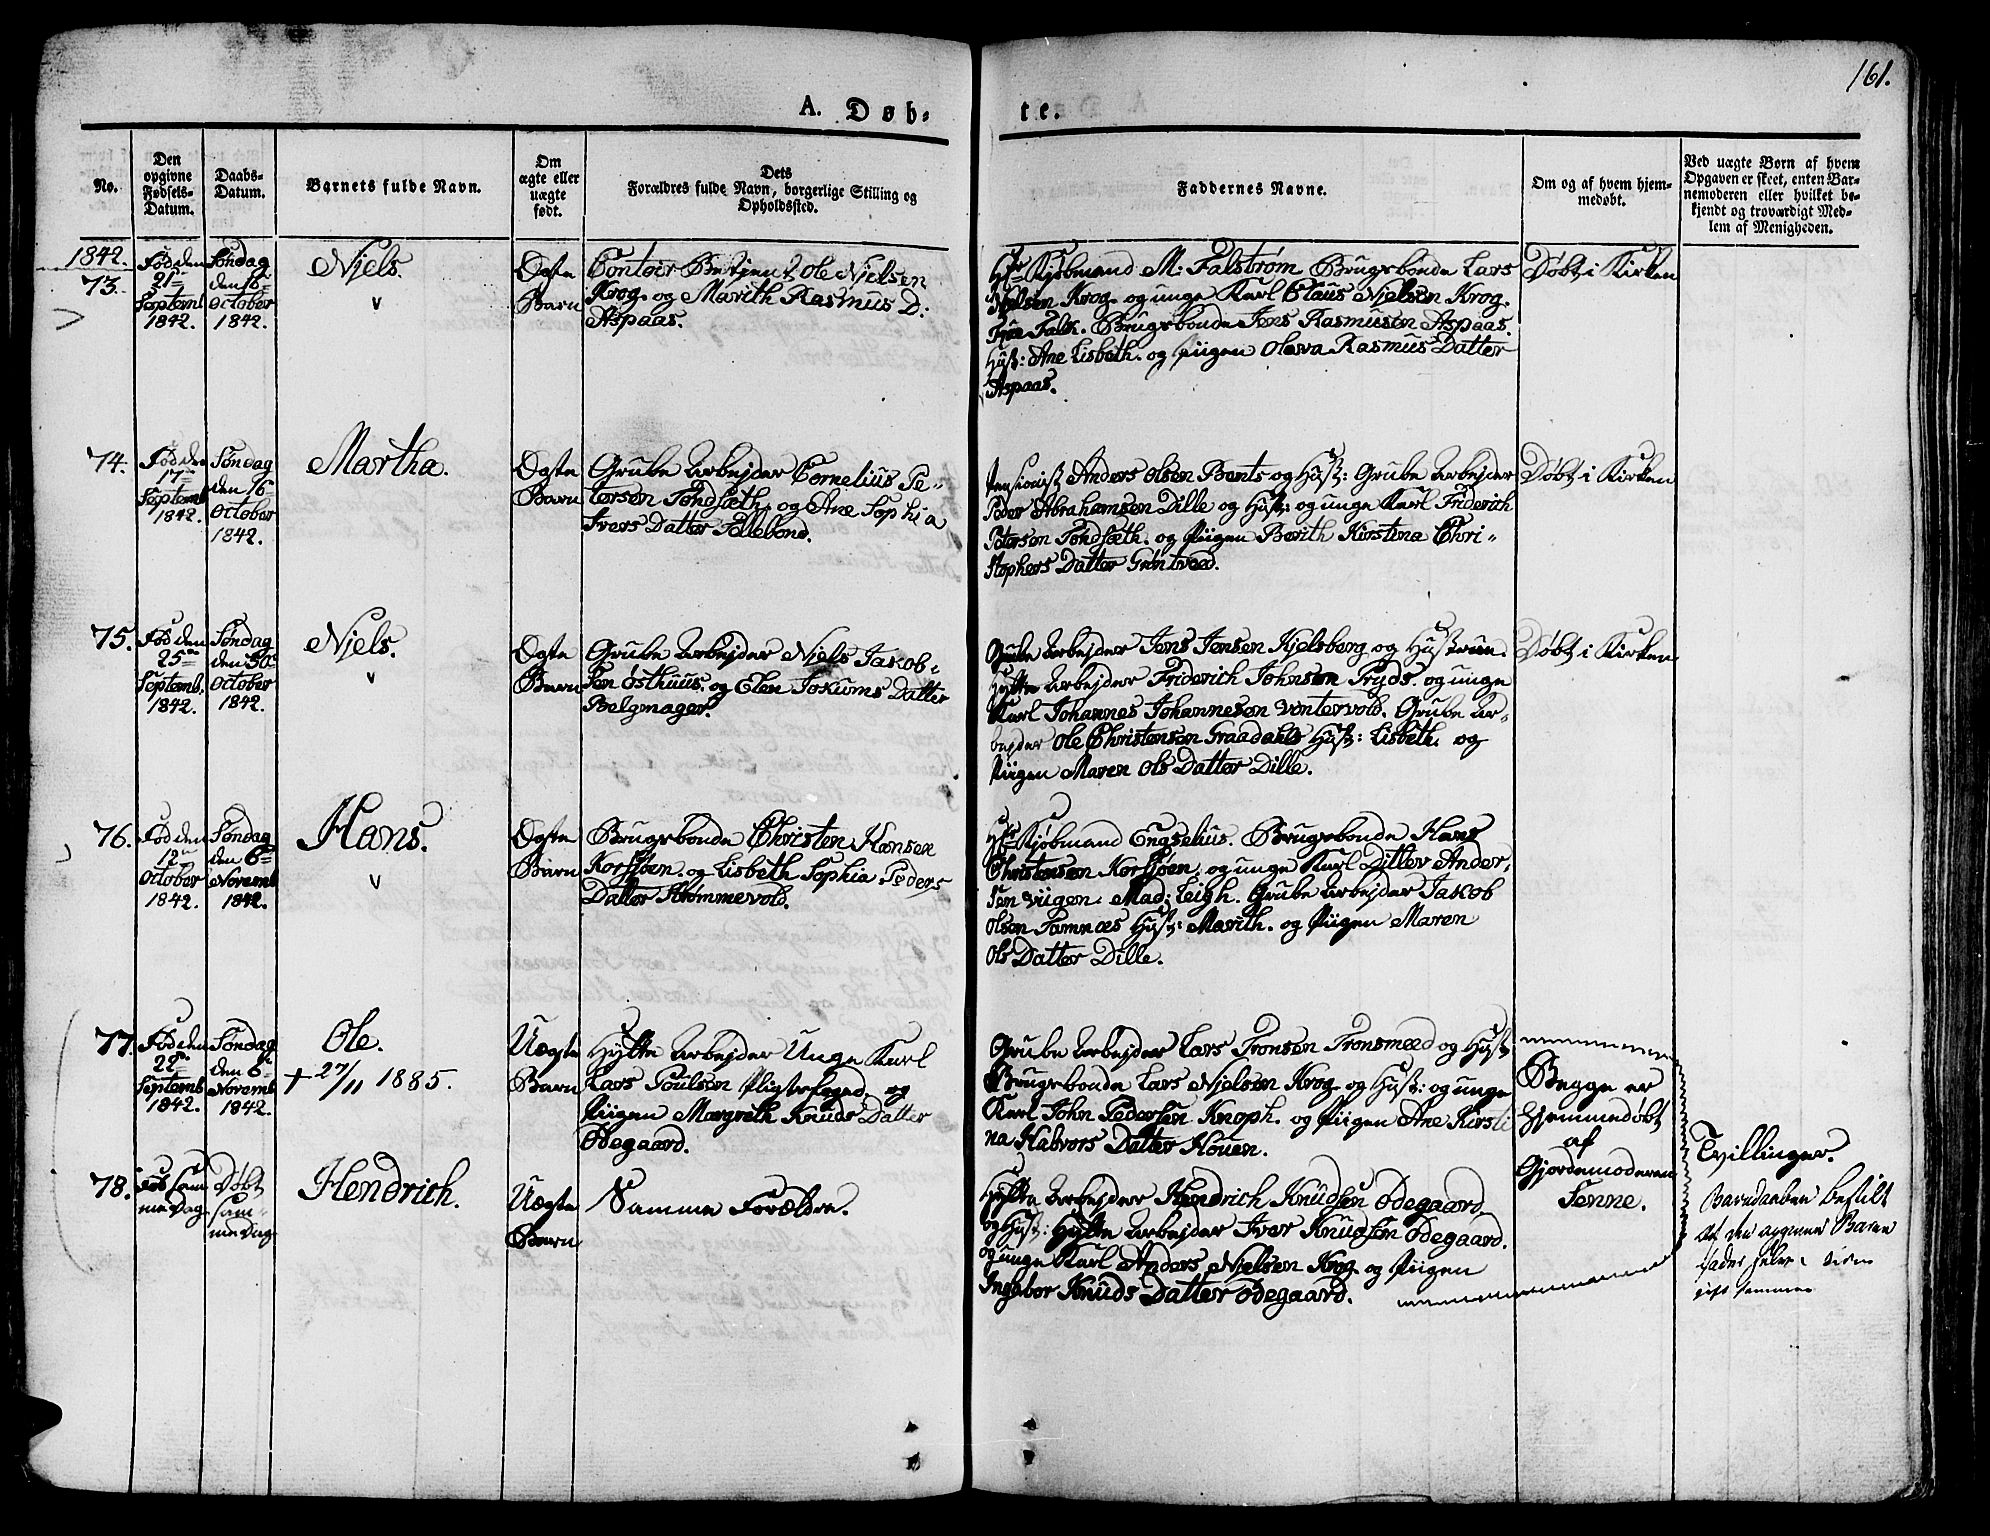 161.
A. Døb-
te.
No.
Den opgivne Fødsels-Datum.
Daabs-Datum.
Barnets fulde Navn.
Om ægte eller uægte født.
Dets
Forældres fulde Navn, borgerlige Stilling og
Opholdssted.
Faddernes Navne.
Om og af hvem hjem-
medøbt.
Ved uægte Børn af hvem
Opgaven er skeet, enten Bar-
nemoderen eller hvilket be-
kjendt og troværdigt Med-
lem af Menigheden.
1842.
73.
Fød den
21de
Septemb.
1842.
Søndag
den 16de
October
1842.
Niels.
Ægte
Barn
Contoir Betjent Ole Nielsen
Krog. og Marith Rasmus D:
Aspaas.
Hr Kjøbmand M: Falstrøm Brugsbonde Lars
Nielsen Krog. og unge Karl Claus Nielsen Krog.
Brugsbonde Jens Rasmusen Aspaas.
Hust: Ane Lisbeth. og Piigen Olava Rasmus Datter
Aspaas.
Døbt i Kirken
74.
Fød den
17de
Septemb.
1842.
Søndag
den 16
October
1842.
Martha.
Ægte
Barn
Grube Arbejder Cornelius Pe-
tersen Tøndsæth. og Ane Sophia
Ivers Datter Follebond.
Pensionist Anders Olsen Bents og Hust: Grube Arbejder
Peder Abrahamsen Dille og Hust: og unge Karl Friderich
Petersen Tøndsæth. og Piigen Berith Kirstina Chri-
stophers Datter Grøntvæd.
Døbt i Kirken
75.
Fød den
25de
Septemb.
1842.
Søndag
den 30te
October
1842.
Niels.
Ægte
Barn
Grube Arbejder Niels Jakob-
sen Østhuus. og Elen Jokums Datter
Belgmager.
Grube Arbejder Jens Jensen Hjelsberg og Hustrue.
Hytte Arbejder Friderich Johnsen Pryds. og unge
Karl Johannes Johannesøn Vintervold. Grube Ar-
bejder Ole Christensen Graadahls Hust: Lisbeth. og
Piigen Maren Ols Datter Dille.
Døbt i Kirken
76.
Fød den
12te
October
1842.
Søndag
den 6te
Novemb
1842.
Hans.
Ægte
Barn
Brugsbonde Christen Hansen
Korssøen. og Lisbeth Sophia Peders
Datter Strømmevold.
Hr Kjøbmand Engselius. Brugsbonde Hans
Christensen Korssjøen. og unge Karl Ditlev Ander-
sen Viigen. Mad: Leigh. Grube Arbejder Jakob
Olsen Tamnæs Hust: Marith. og Piigen Maren
Ols Datter Dille.
77.
Fød den
22de
Septemb
1842.
Søndag
den 6te
Novemb
1842.
Ole.
+ 27/11 1885.
Uægte
Barn
Hytte Arbejder Unge Karl
Lars Poulsen Pligtefoged. og
Piigen Margreth Knuds Datter
Ødegaard.
Grube Arbejder Lars Tronsen Tronsmoed og Hust
Brugsbonde Lars Nielsen Krog. og Hust: og unge
Karl John Pedersen Knoph. og Piigen Ane Kirsti
na Halvors Datter Houen.
Begge er
Hjemmedøbt
af
Gjordemoderen
Tenne.
78.
Fød sam
me Dag
Døbt
sam-
me Dag
Hendrich.
Uægte
Barn
Samme Forældre.
Hytte Arbejder Hendrich Knudsen Ødegaard
og Hust: Hytte Arbejder Iver Knudsen Ødegaard.
og unge Karl Anders Nielsen Krog. og Piigen
Ingebor Knuds Datter Ødegaard.
Tvillinger.
Barnedaaben bestilt
af den angivne Barne
fader selv